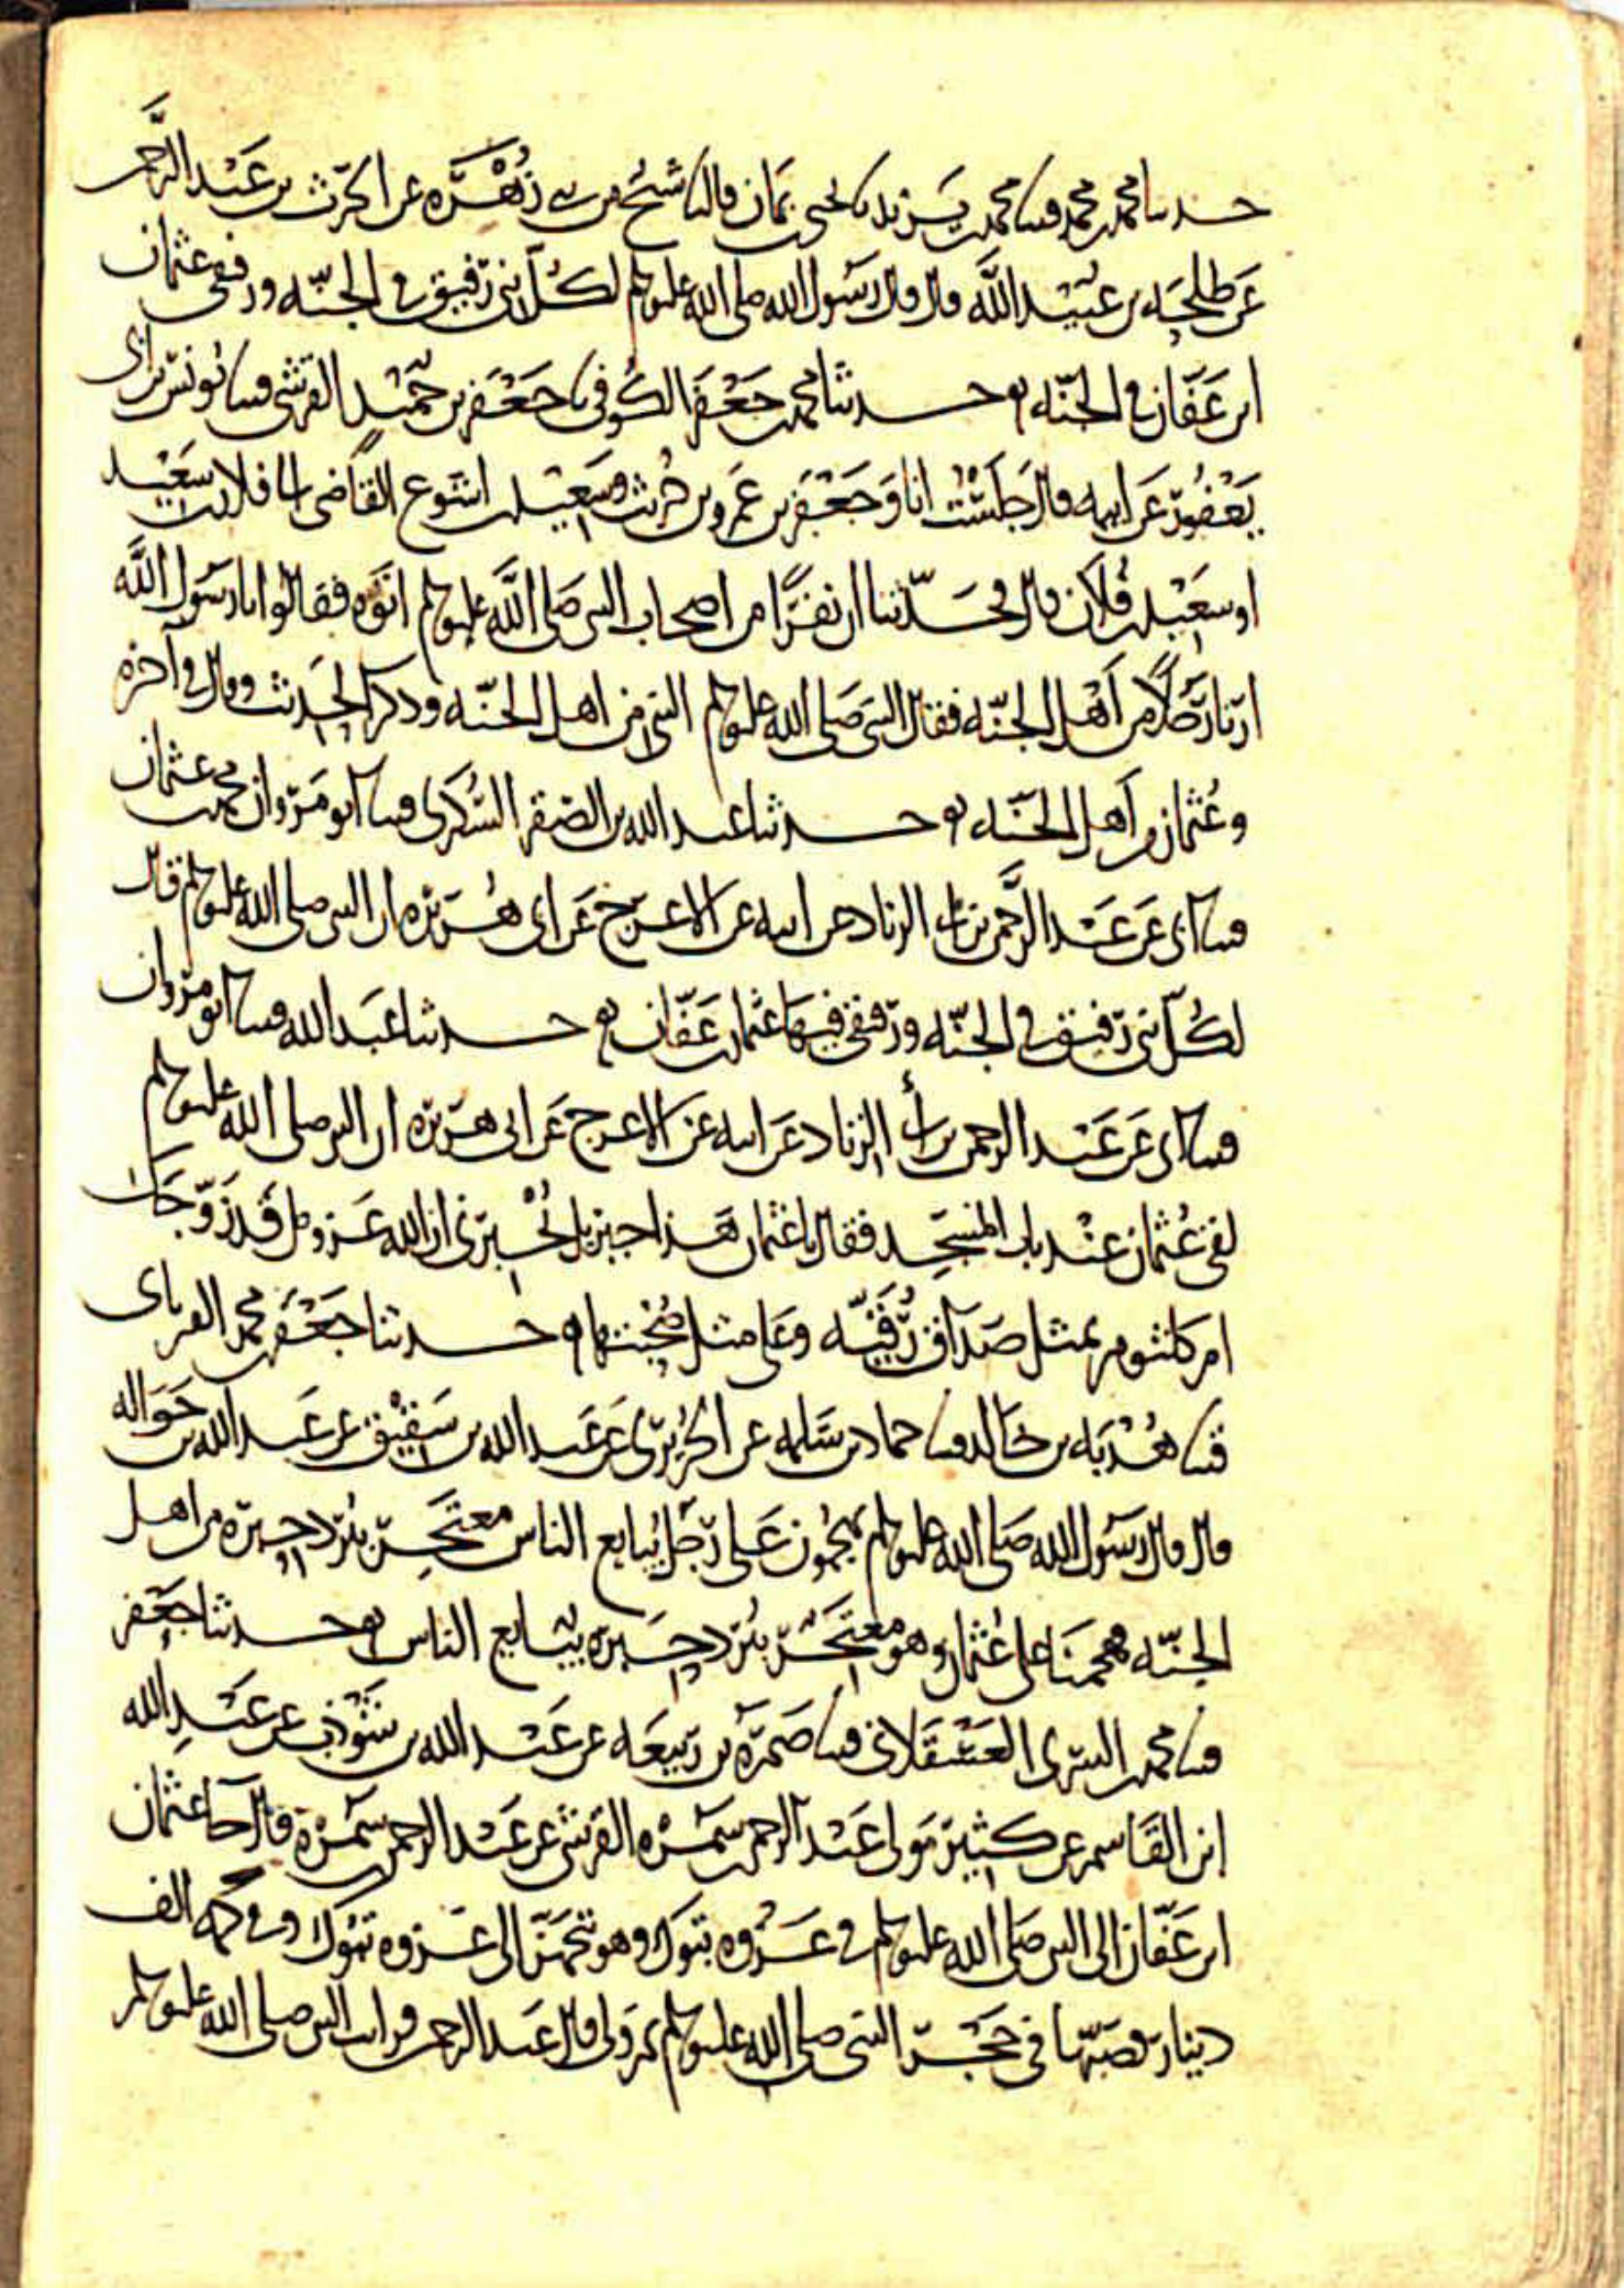 حدثنا محمد بن محمد قثنا محمد بن يزيد نا يحيى بن يمان قال نا شيخ من بني زهرة عن الحرث بن عبد الرحمن
عن طلحه بن عبيد الله قال قال رسول الله صلى الله عليه وسلم لكل نبي رفيق في الجنه ورفيقي عثمان
ابن عفان في الجنه حدثنا محمد بن جعفر الكوفي نا جعفر بن حميد القرشي قثنا يونس بن ابي
يعفور عن ابيه قال جلست انا وجعفر بن عمرو بن حريث وسعيد بن اشوع القاضي الى فلان بن سعيد
او سعيد بن فلان قال فحدثنا ان نفرا من اصحاب النبي صلى الله عليه وسلم اتوه فقالوا يا رسول الله
ارنا رجلا من اهل الجنه فقال النبي صلى الله عليه وسلم النبي من اهل الجنه وذكر الحديث وقال في آخره
وعثمان من اهل الجنه حدثنا عبد الله بن الصقر السكري قثنا ابو مروان محمد بن عثمان
قثنا ابي عن عبد الرحمن بن ابي الزناد عن ابيه عن الاعرج عن ابي هريره ان النبي صلى الله عليه وسلم قال
لكل نبي رفيق في الجنه ورفيقي فيها عثمان بن عفان حدثنا عبد الله قثنا ابو مروان
قثنا ابي عن عبد الرحمن بن ابي الزناد عن ابيه عن الاعرج عن ابي هريره ان النبي صلى الله عليه وسلم
لقي عثمان عند باب المسجد فقال يا عثمان هذا جبريل يخبرني ان الله عز وجل قد زوجك
ام كلثوم بمثل صداق رقيه وعلى مثل صحبتها حدثنا جعفر بن محمد الفريابي
قثنا هدبه بن خالد قثنا حماد بن سلمه عن الجريري عن عبد الله بن شقيق عن عبد الله بن حواله
قال قال رسول الله صلى الله عليه وسلم تهجمون على رجل يبايع الناس معتجر ببرد حبره من اهل
الجنه فهجمنا على عثمان وهو معتجر ببرد حبره يبايع الناس حدثنا جعفر
قثنا محمد بن السري العسقلاني قثنا ضمرة بن ربيعه عن عبد الله بن شوذب عن عبد الله
ابن القاسم عن كثير مولى عبد الرحمن بن سمره القرشي عن عبد الرحمن بن سمرة قال جا عثمان
ابن عفان الى النبي صلى الله عليه وسلم في غزوه تبوك وهو يتجهز الى غزوه تبوك وفي كمه الف
دينار فصبها في حجر النبي صلى الله عليه وسلم ثم ولى قال عبد الرحمن فرايت النبي صلى الله عليه وسلم